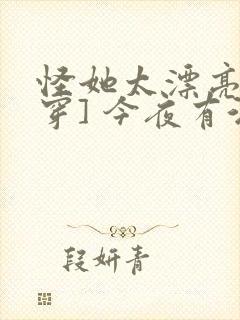 怪她太漂亮
穿] 今夜有
段妍青